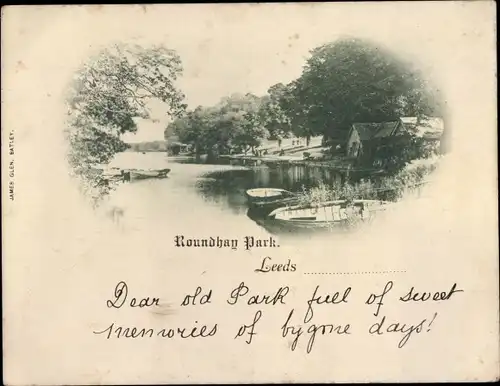 JAMES GLEN. BATLEY.
Roundhay Park.
Leeds
Dear old Park full of sweet
memories of bygone days!